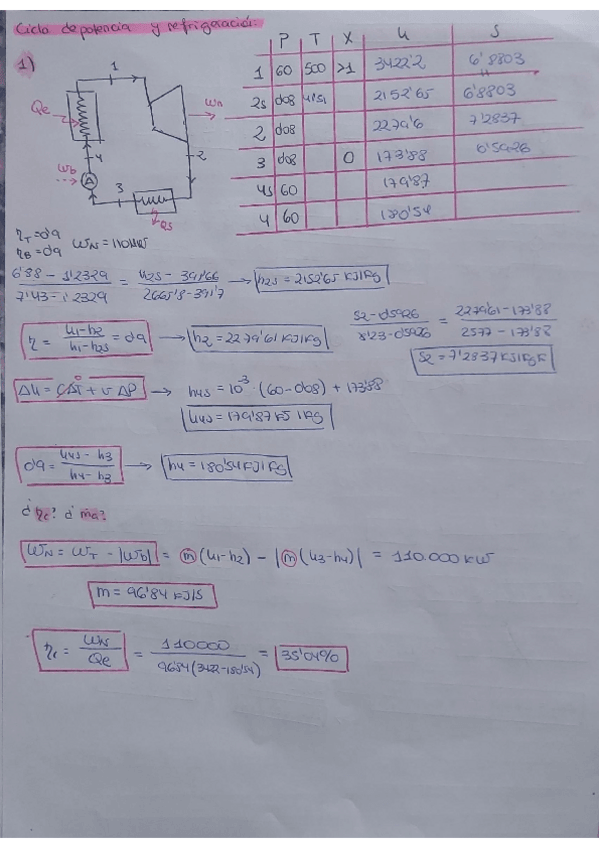 Ciclo de potencia y refrigeración:
1)
P T X h S
1 60 500 >1 3422'2 6'8803
2s 0'08 41'51 2152'65 6'8803
2 0'08 2279'6 7'2837
3 0'08 0 173'88 0'5926
4s 60 179'87
4 60 180'54
1
Qe
Wn
4
2
Wb
3
Qs
ηT = 0'9
ηB = 0'9 WN = 110MW
6'88 - 1'2329 / 7'43 - 1'2329 = h2s - 391'66 / 2665'8 - 391'7 → h2s = 2152'65 KJ/Kg
η = h1-h2 / h1-h2s = 0'9 → h2 = 2279'61 KJ/Kg
s2 - 0'5926 / 8'23 - 0'5926 = 2279'61 - 173'88 / 2577 - 173'88
s2 = 7'2837 KJ/KgK
Δh = CΔT + v ΔP → h4s = 10⁻³ · (60 - 0'08) + 173'88
h4s = 179'87 KJ/Kg
0'9 = h4s - h3 / h4 - h3 → h4 = 180'54 KJ/Kg
¿ηc? ¿ma?
WN = WT - |Wb| = m (h1-h2) - |m (h3-h4)| = 110.000 KW
m = 96'84 KJ/S
ηc = WN / Qe = 110000 / 96'84 (3422 - 180'54) = 35'04%